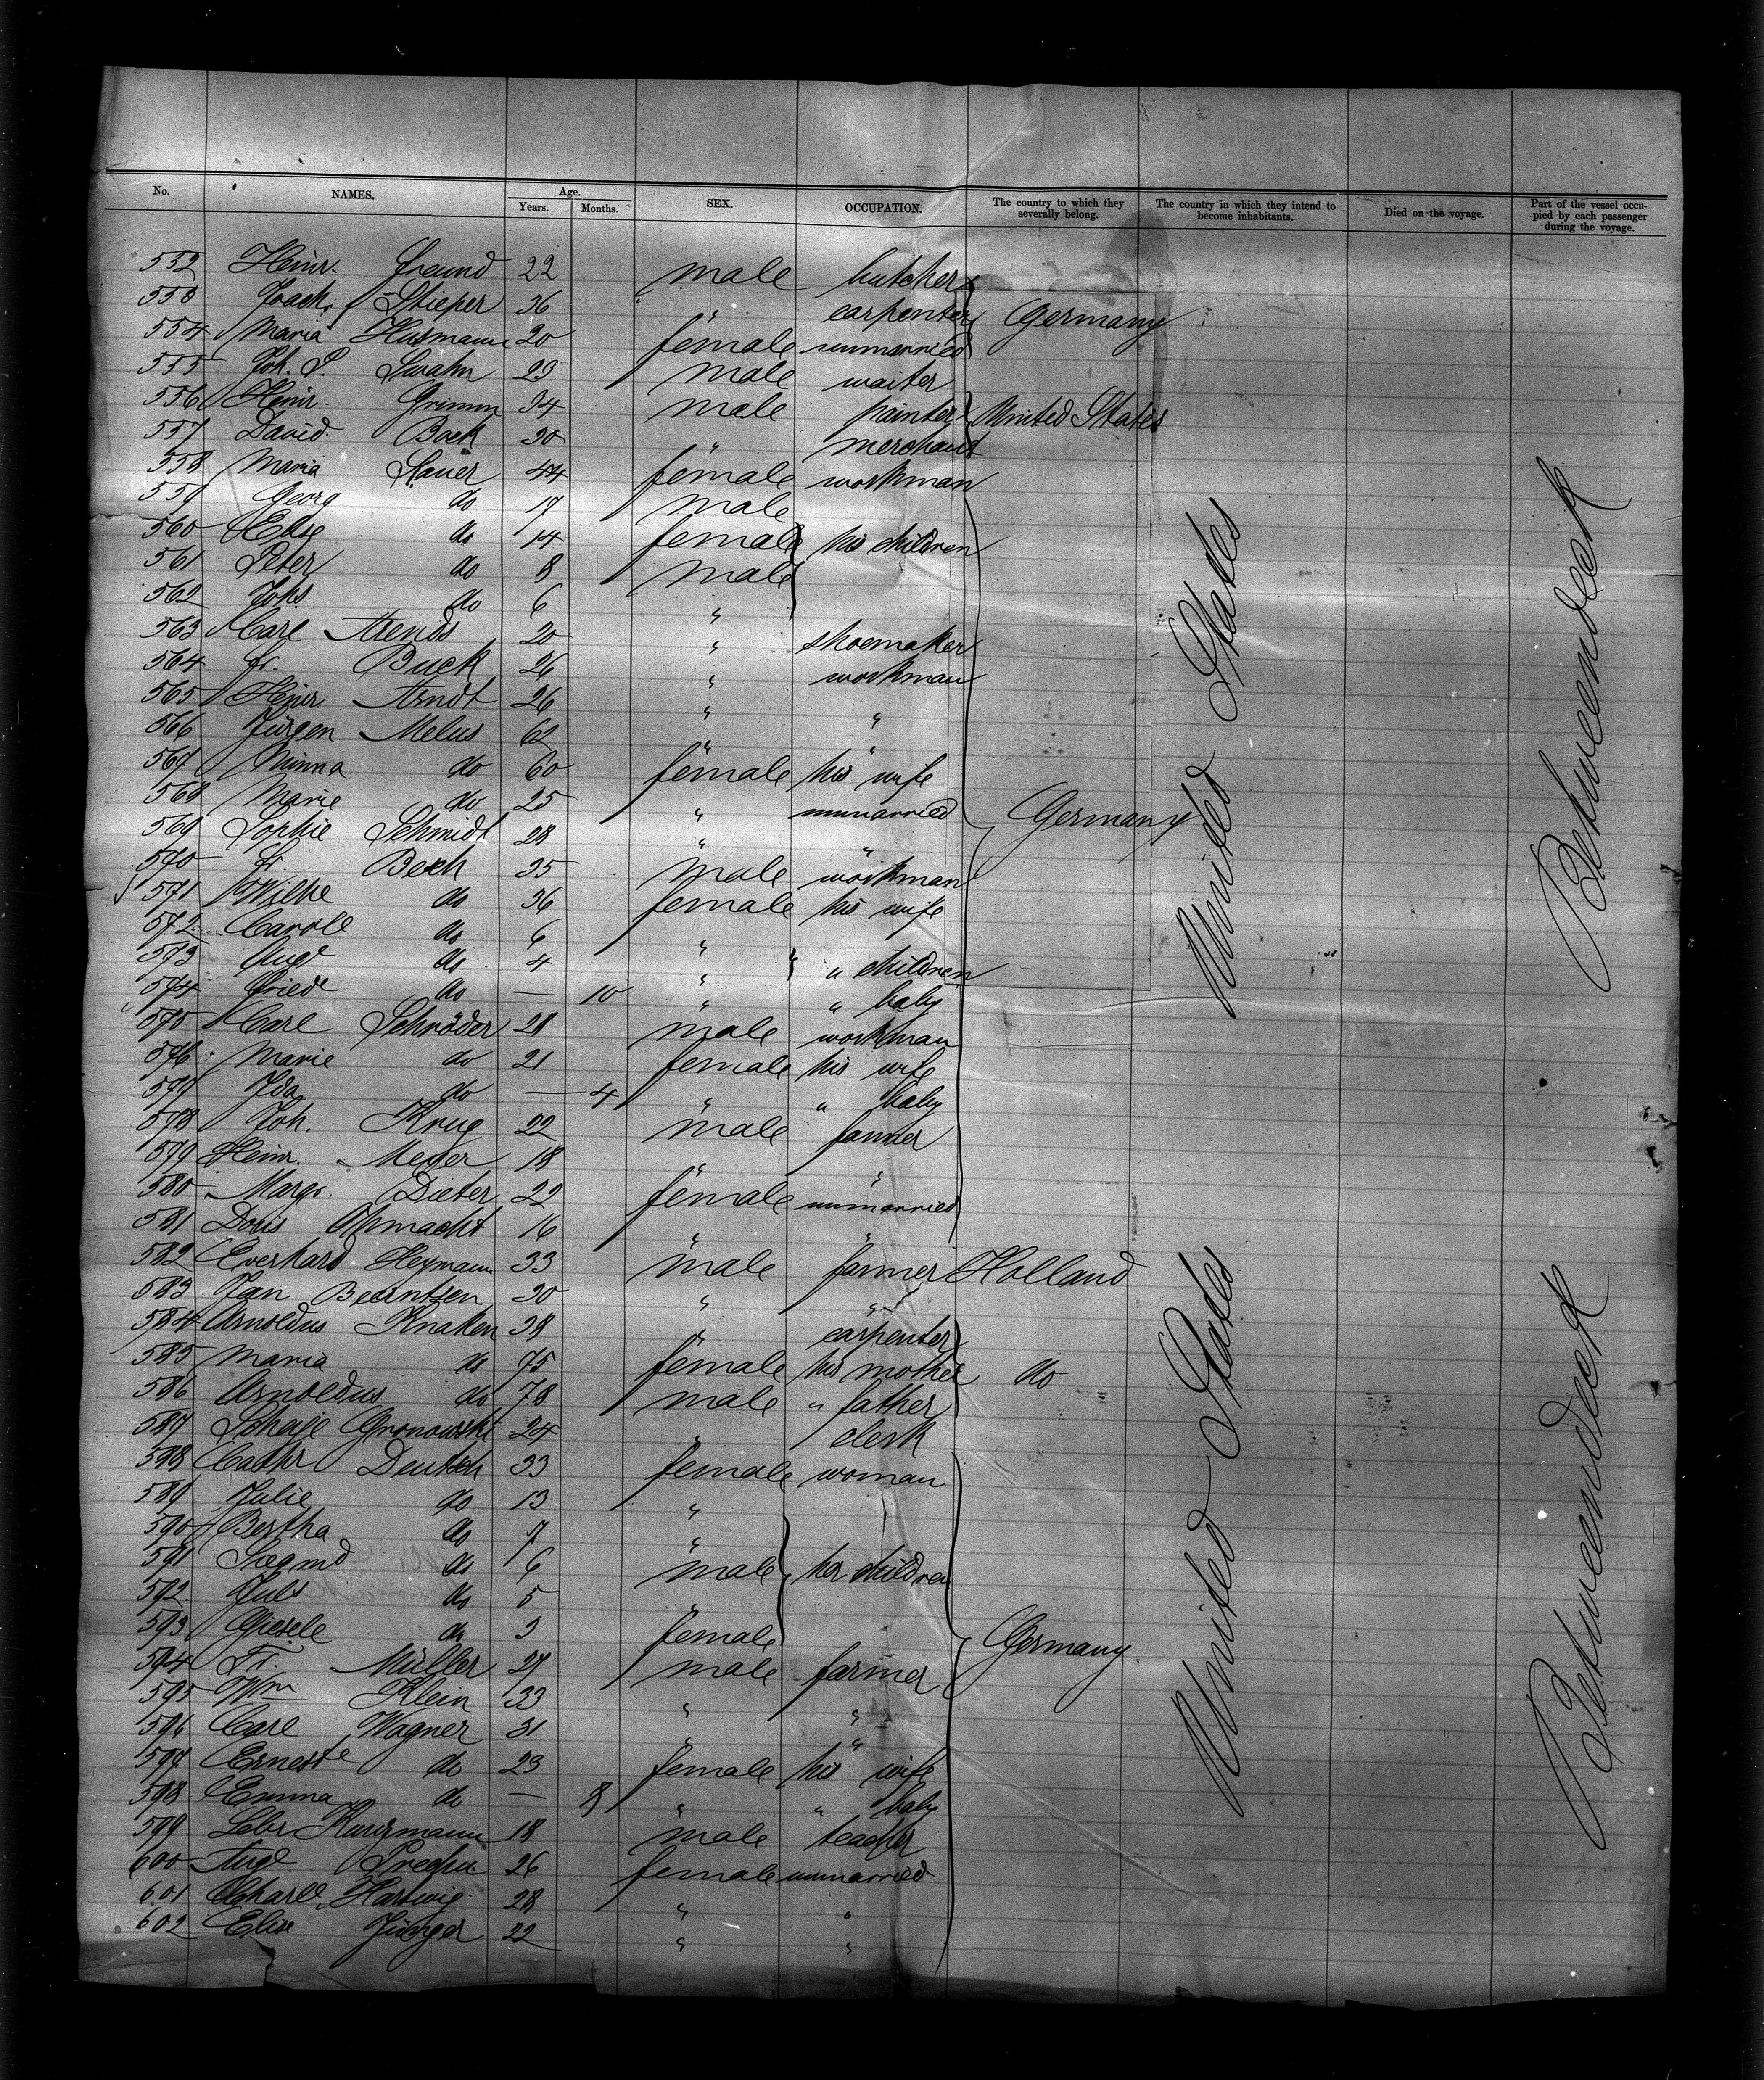 No. NAMES. Age. Years. Months. SEX. OCCUPATION. The country to which they severally belong. The country in which they intend to become inhabitants. Died on the voyage. Part of the vessel occupied by each passenger during the voyage.
552 Heinr. Freund 22 male butcher
553 Joach. Stieper 36 " carpenter Germany
554 Maria Husmann 20 female unmarried
555 Joh. S. Swahn 29 male waiter
556 Heinr. Grimm 34 male painter United States
557 David Bock 30 " merchant
558 Maria Sauer 44 female workman
559 Georg do 17 male
560 Else do 14 female his children
561 Peter do 8 male
562 Johs do 6 "
563 Carl Arends 20 " shoemaker
564 Fr. Buck 26 " workman
565 Heinr Arndt 26 " "
566 Jürgen Melus 62 " "
567 Minna do 60 female his wife
568 Marie do 25 " unmarried Germany
569 Sophie Schmidt 28 " "
570 Fr. Bech 35 male workman
571 Wilhe do 36 female his wife
572 Carole do 6 "
573 Auge do 4 " " children
574 Friede do — 10 " " baby
575 Carl Schröder 28 male workman
576 Marie do 21 female his wife
577 Ida do — 4 " " baby
578 Joh. Krug 22 male farmer
579 Heinr. Meyer 18 " "
580 Margr. Dieter 22 female unmarried
581 Doris Ohmacht 16 " "
582 Everhard Heymann 33 male farmer Holland
583 Jan Beerntsen 30 " "
584 Arnoldus Knaken 38 " carpenter
585 Maria do 75 female his mother do
586 Arnoldus do 78 male " father
587 Schaje Gronowski 24 " clerk
588 Cathr Deutsch 33 female woman
589 Julie do 13 "
590 Bertha do 7 "
591 Siegmd do 6 male her children
592 Juls do 5 "
593 Giesele do 3 female Germany
594 Fr. Müller 27 male farmer
595 Wm Klein 33 " "
596 Carl Wagner 31 " "
597 Erneste do 23 female his wife
598 Emma do — 8 " " baby
599 Lebr Kurzmann 18 male teacher
600 Auge 26 female unmarried
601 Hartwig 28 " "
602 Elise 22 " "
United States
United States
Betweendeck
Betweendeck